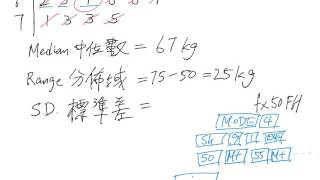 7 2 3 3 5
Median 中位數 = 67 kg
Range 分佈域 = 75-50 = 25kg
S.D. 標準差 =
fx50FH
MODE 4
Sh 9 1 EXE
50 M+ 55 M+ ......